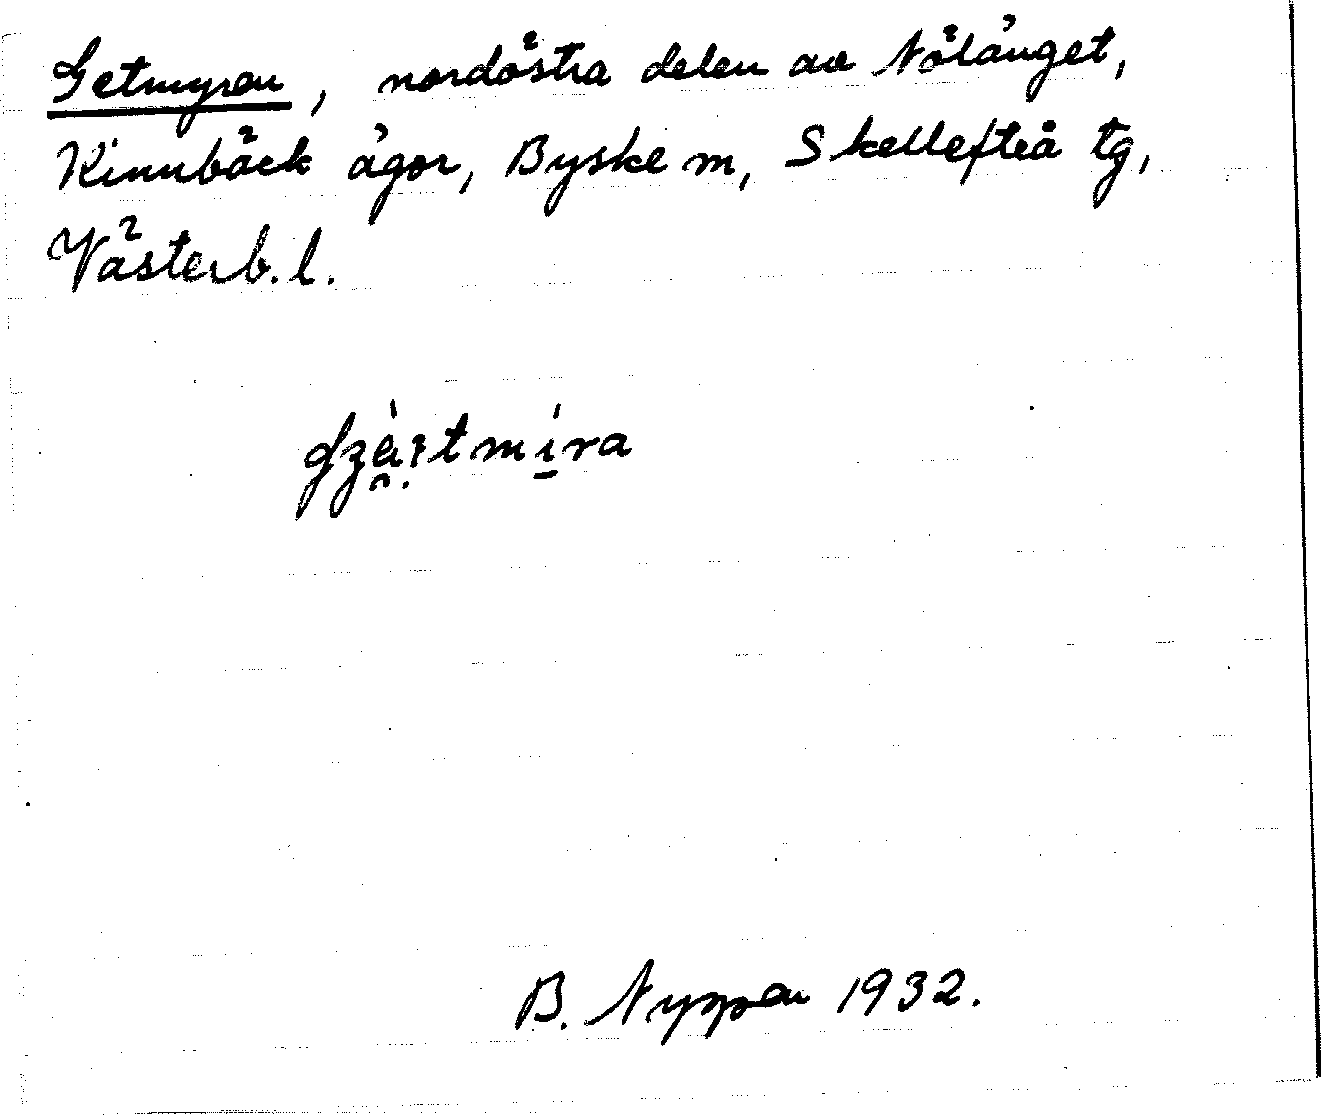 Getmyran, nordöstra delen av Nölånget,
Kinnbäck ägor, Byske m, Skellefteå tg,
Västerb. l.
B. Nyppen 1932.